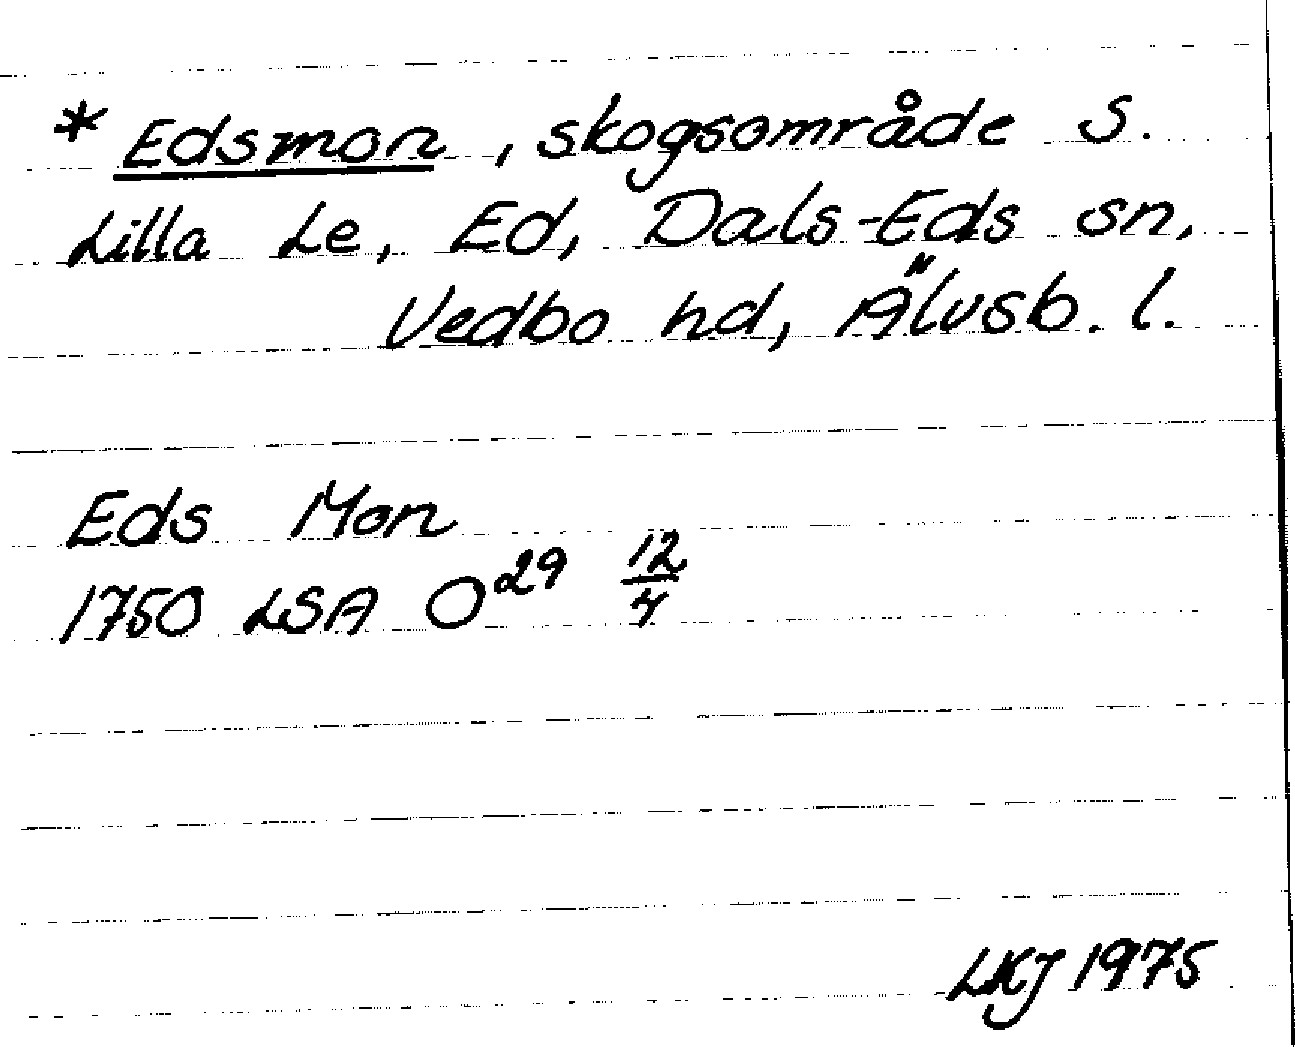 * Edsmon, skogsområde S.
Lilla Le, Ed, Dals-Eds sn,
Vedbo hd, Älvsb. l.
Eds Mon
1750 LSA O²⁹ 12/4
LKJ 1975